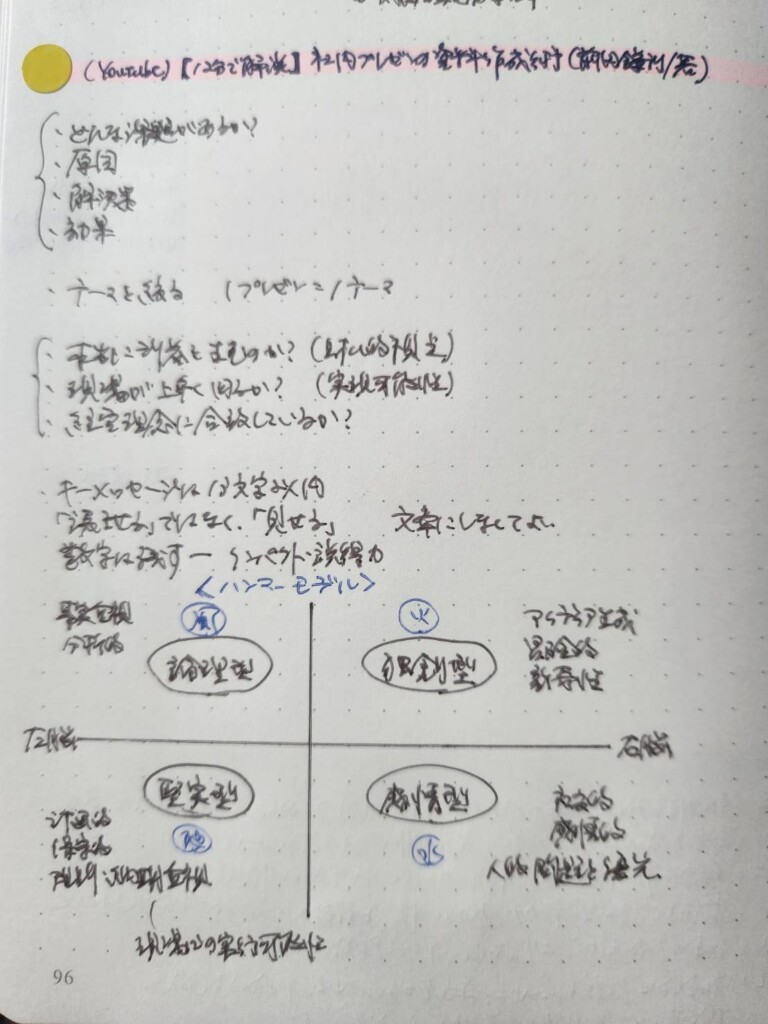 (YouTube)【12分で解説】社内プレゼンの資料作成術(前田鎌利/著)
・どんな課題があるか?
・原因
・解決策
・効果
・テーマを絞る 1プレゼン=1テーマ
・本当に利益を生むのか?(財務的視点)
・現場が上手く回るか?(実現可能性)
・経営理念に合致しているか?
・キーメッセージは13文字以内
「読ませる」ではなく、「見せる」 文章にしなくてよい
数字は残す ー インパクト・説得力
<ハンマーモデル>
事実重視
分析的
風
論理型
火
独創型
アイデア生成
冒険的
新奇性
左脳
右脳
堅実型
計画的
保守的
感情型
水
社交的
感情的
人的問題を優先
現場での実行可能性
96